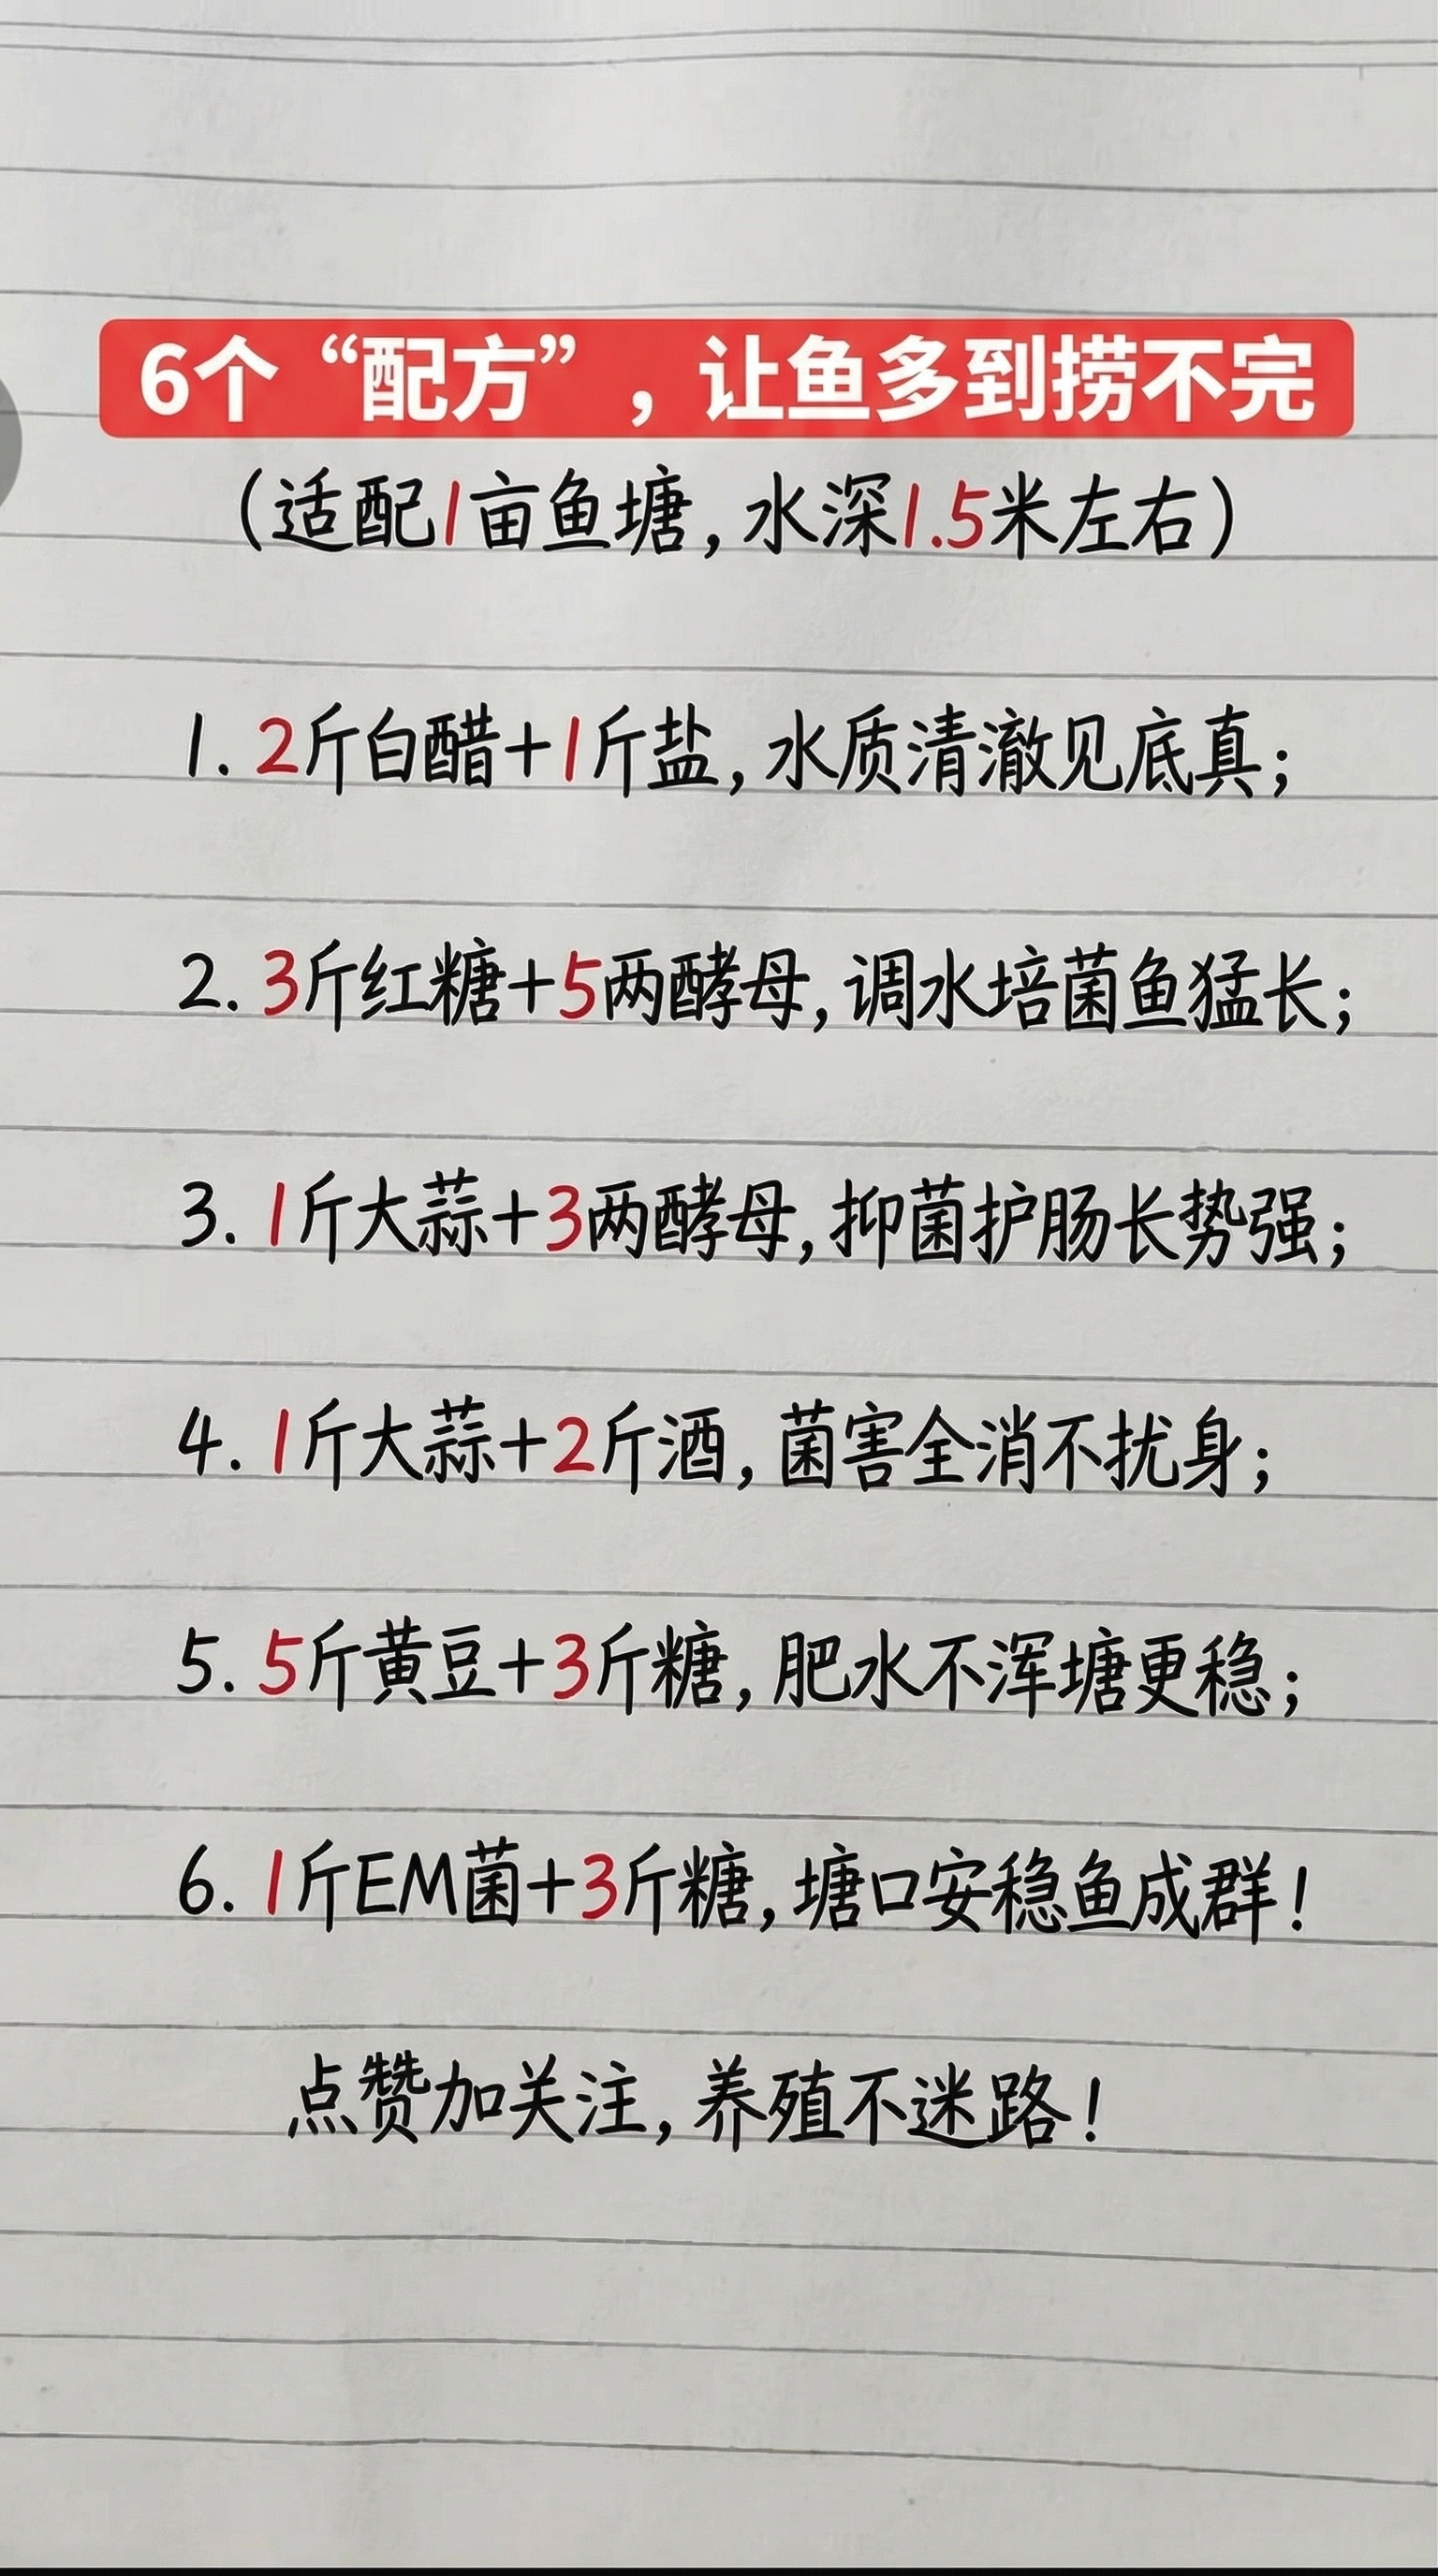 6个“配方”，让鱼多到捞不完
（适配1亩鱼塘，水深1.5米左右）
1. 2斤白醋+1斤盐，水质清澈见底真；
2. 3斤红糖+5两酵母，调水培菌鱼猛长；
3. 1斤大蒜+3两酵母，抑菌护肠长势强；
4. 1斤大蒜+2斤酒，菌害全消不扰身；
5. 5斤黄豆+3斤糖，肥水不浑塘更稳；
6. 1斤EM菌+3斤糖，塘口安稳鱼成群！
点赞加关注，养殖不迷路！